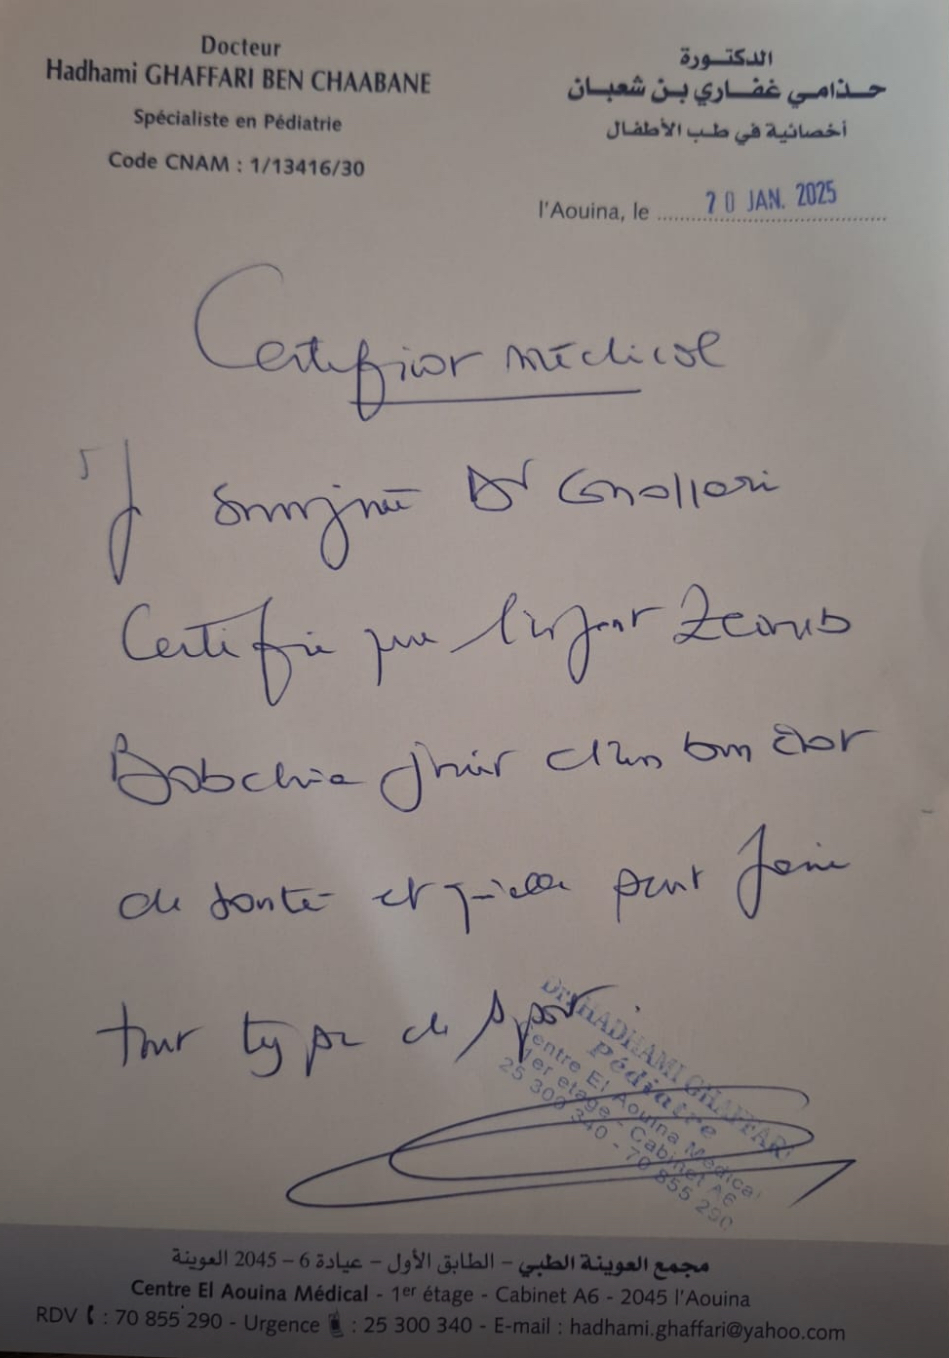 Docteur
Hadhami GHAFFARI BEN CHAABANE
Spécialiste en Pédiatrie
Code CNAM : 1/13416/30
الدكتـــورة
حـــذامي غفـــاري بـــن شعبـــان
أخصائية في طـب الأطفـال
l'Aouina, le 20 JAN. 2025
Certificat médical
Je soussigné Dr Ghaffari
Certifie que l'enfant Zeineb
jouit d'un bon état
de santé et qu'elle peut faire
tout type de sport.
Dr. HADHAMI GHAFFARI
Pédiatre
Centre El Aouina Médical
1er etage - Cabinet A6
25 300 340 - 70 855 290
مجمع العوينة الطبي – الطابق الأول – عيادة 6 – 2045 العوينة
Centre El Aouina Médical - 1er étage - Cabinet A6 - 2045 l'Aouina
RDV : 70 855 290 - Urgence : 25 300 340 - E-mail : hadhami.ghaffari@yahoo.com